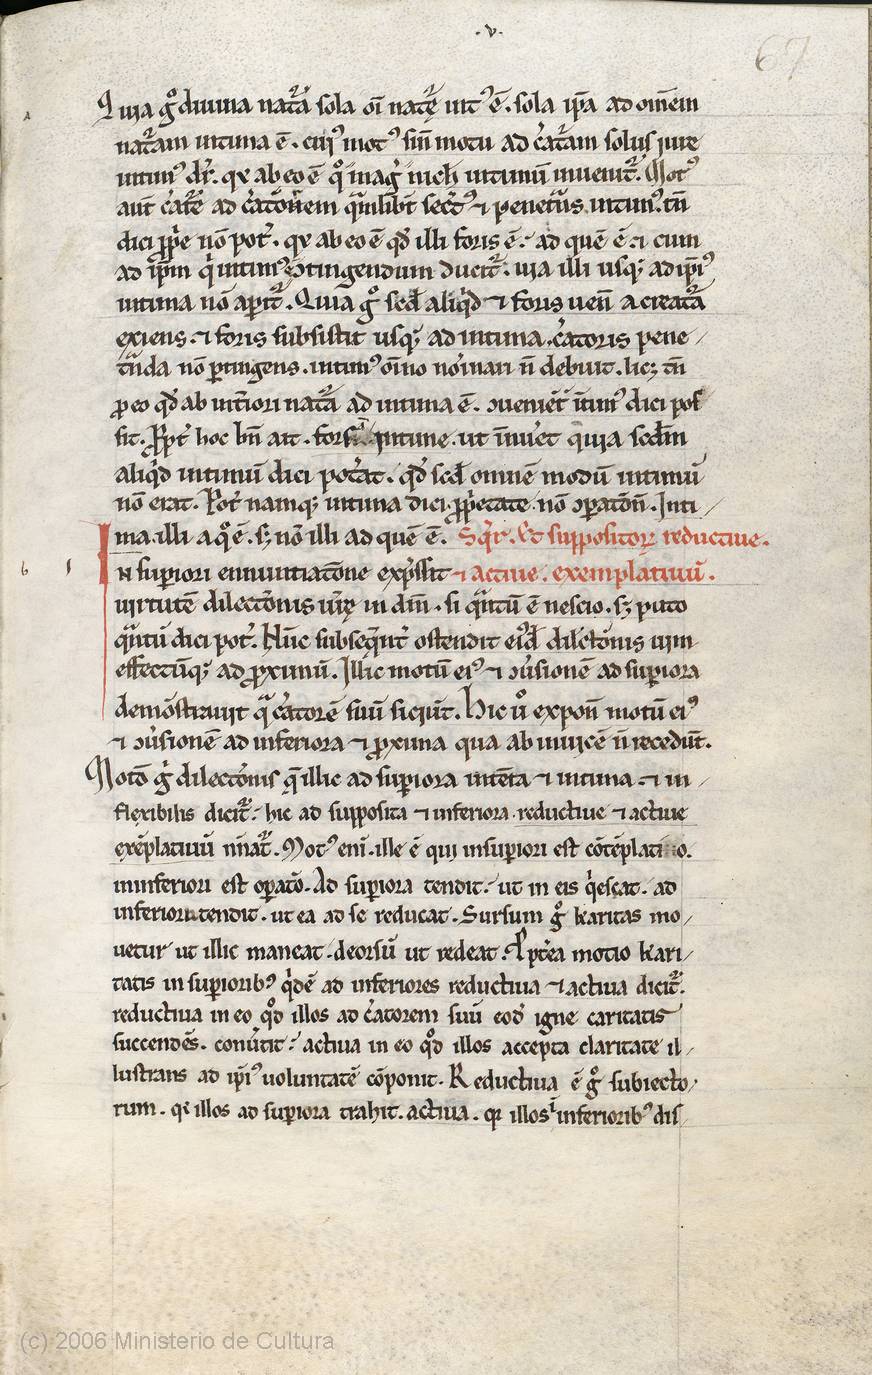 .v.
67
Quia g̊ diuina nat̃a sola oĩ nat̃e intᵒ ẽ. sola ip̃a ad om̃em
nat̃am intima ẽ. cuiᵒ motᵒ siñ motu ad c̃at̃am solus iure
intimᵒ dr̃. qr ab eo ẽ q̊ magᵒ nich intimũ inuenit̃. Motᵒ
aut̃
dici pp̃e nõ pot̃. qr ab eo ẽ qd̃ illi foris ẽ. ad quẽ ẽ. ⁊ cum
ad ip̃m ducit̃. uia illi usq; ad ip̃iᵒ
intima nõ apit̃. Quia g̊ sed̃ aliq̃d ⁊ foris ueñ a creat̃a
exiens. ⁊ foris subsistit usq; ad intima c̃atoris pene
t̃nda nõ ptingens. intimᵒ oĩno noĩnari ñ debuit. licꝫ tñ
ꝓ eo qd̃ ab int̃iori nat̃a ad intima ẽ. dici pos
sit. Ꝓpt̃ hoc bñ ait. intime. ut quia sed̃m
aliq̃d intimũ dici pot̃at. qd̃ sed̃ omnẽ modũ intimũ
nõ erat. Pot̃ namq; intima dici. pp̃etate nõ opatõñ. Inti
ma. illi a q̊ ẽ. sꝫ nõ illi ad quẽ ẽ. Sq̃r. Et suppositoꝝ reductiue.
In superiori ennuntiatõne exp̃ssit ⁊ actiue. exemplatiuũ.
uirtutẽ dilectõnis in dñi. si q̃ntũ ẽ nescio. sꝫ puto
q̃ntũ dici pot̃. Nũc subseq̃nt̃ ostendit eiᵒd̃ dilctõnis uim
effectũq; ad ꝓximũ. Illic motũ eiᵒ ⁊ ɔũsionẽ ad supiora
demõstrauit q̃ c̃atorẽ suũ siciũt. Hic u̾ expoñ motũ eiᵒ
⁊ ɔũsionẽ ad inferiora ⁊ ꝓxima qua ab inuicẽ ñ recedũt.
Motõ g̊ dilectõnis q̃ illic ad supiora intẽta ⁊ intima. ⁊ in
flexibilis dicit̃. hic ad supposita ⁊ inferiora. reductiue ⁊ actiue
exẽplatiuũ Motᵒ enĩ. ille ẽ qui in supiori est cõtẽplatio.
in inferiori est opatõ. Ad supiora tendit. ut in eis q̃escat. ad
inferiora tendit. ut ea ad se reducat. Sursum g̊ karitas mo
uetur ut illic maneat. deorsũ ut redeat. Ꝓpt̃ea motio kari
tatis in supioribᵒ q̃dẽ ad inferiores reductiua ⁊ actiua dicit̃.
reductiua in eo q̊d illos ad c̃atorem suũ eod̃ igne caritatis
succendẽs. conũtit. actiua in eo q̊d illos accepta claritate il
lustrans ad ip̃iᵒ uoluntatẽ cõponit. Reductiua ẽ g̊ subiecto
rum. qr illos ad supiora trahit. actiua. qr illos ĩ inferioribᵒ dis
(c) 2006 Ministerio de Cultura